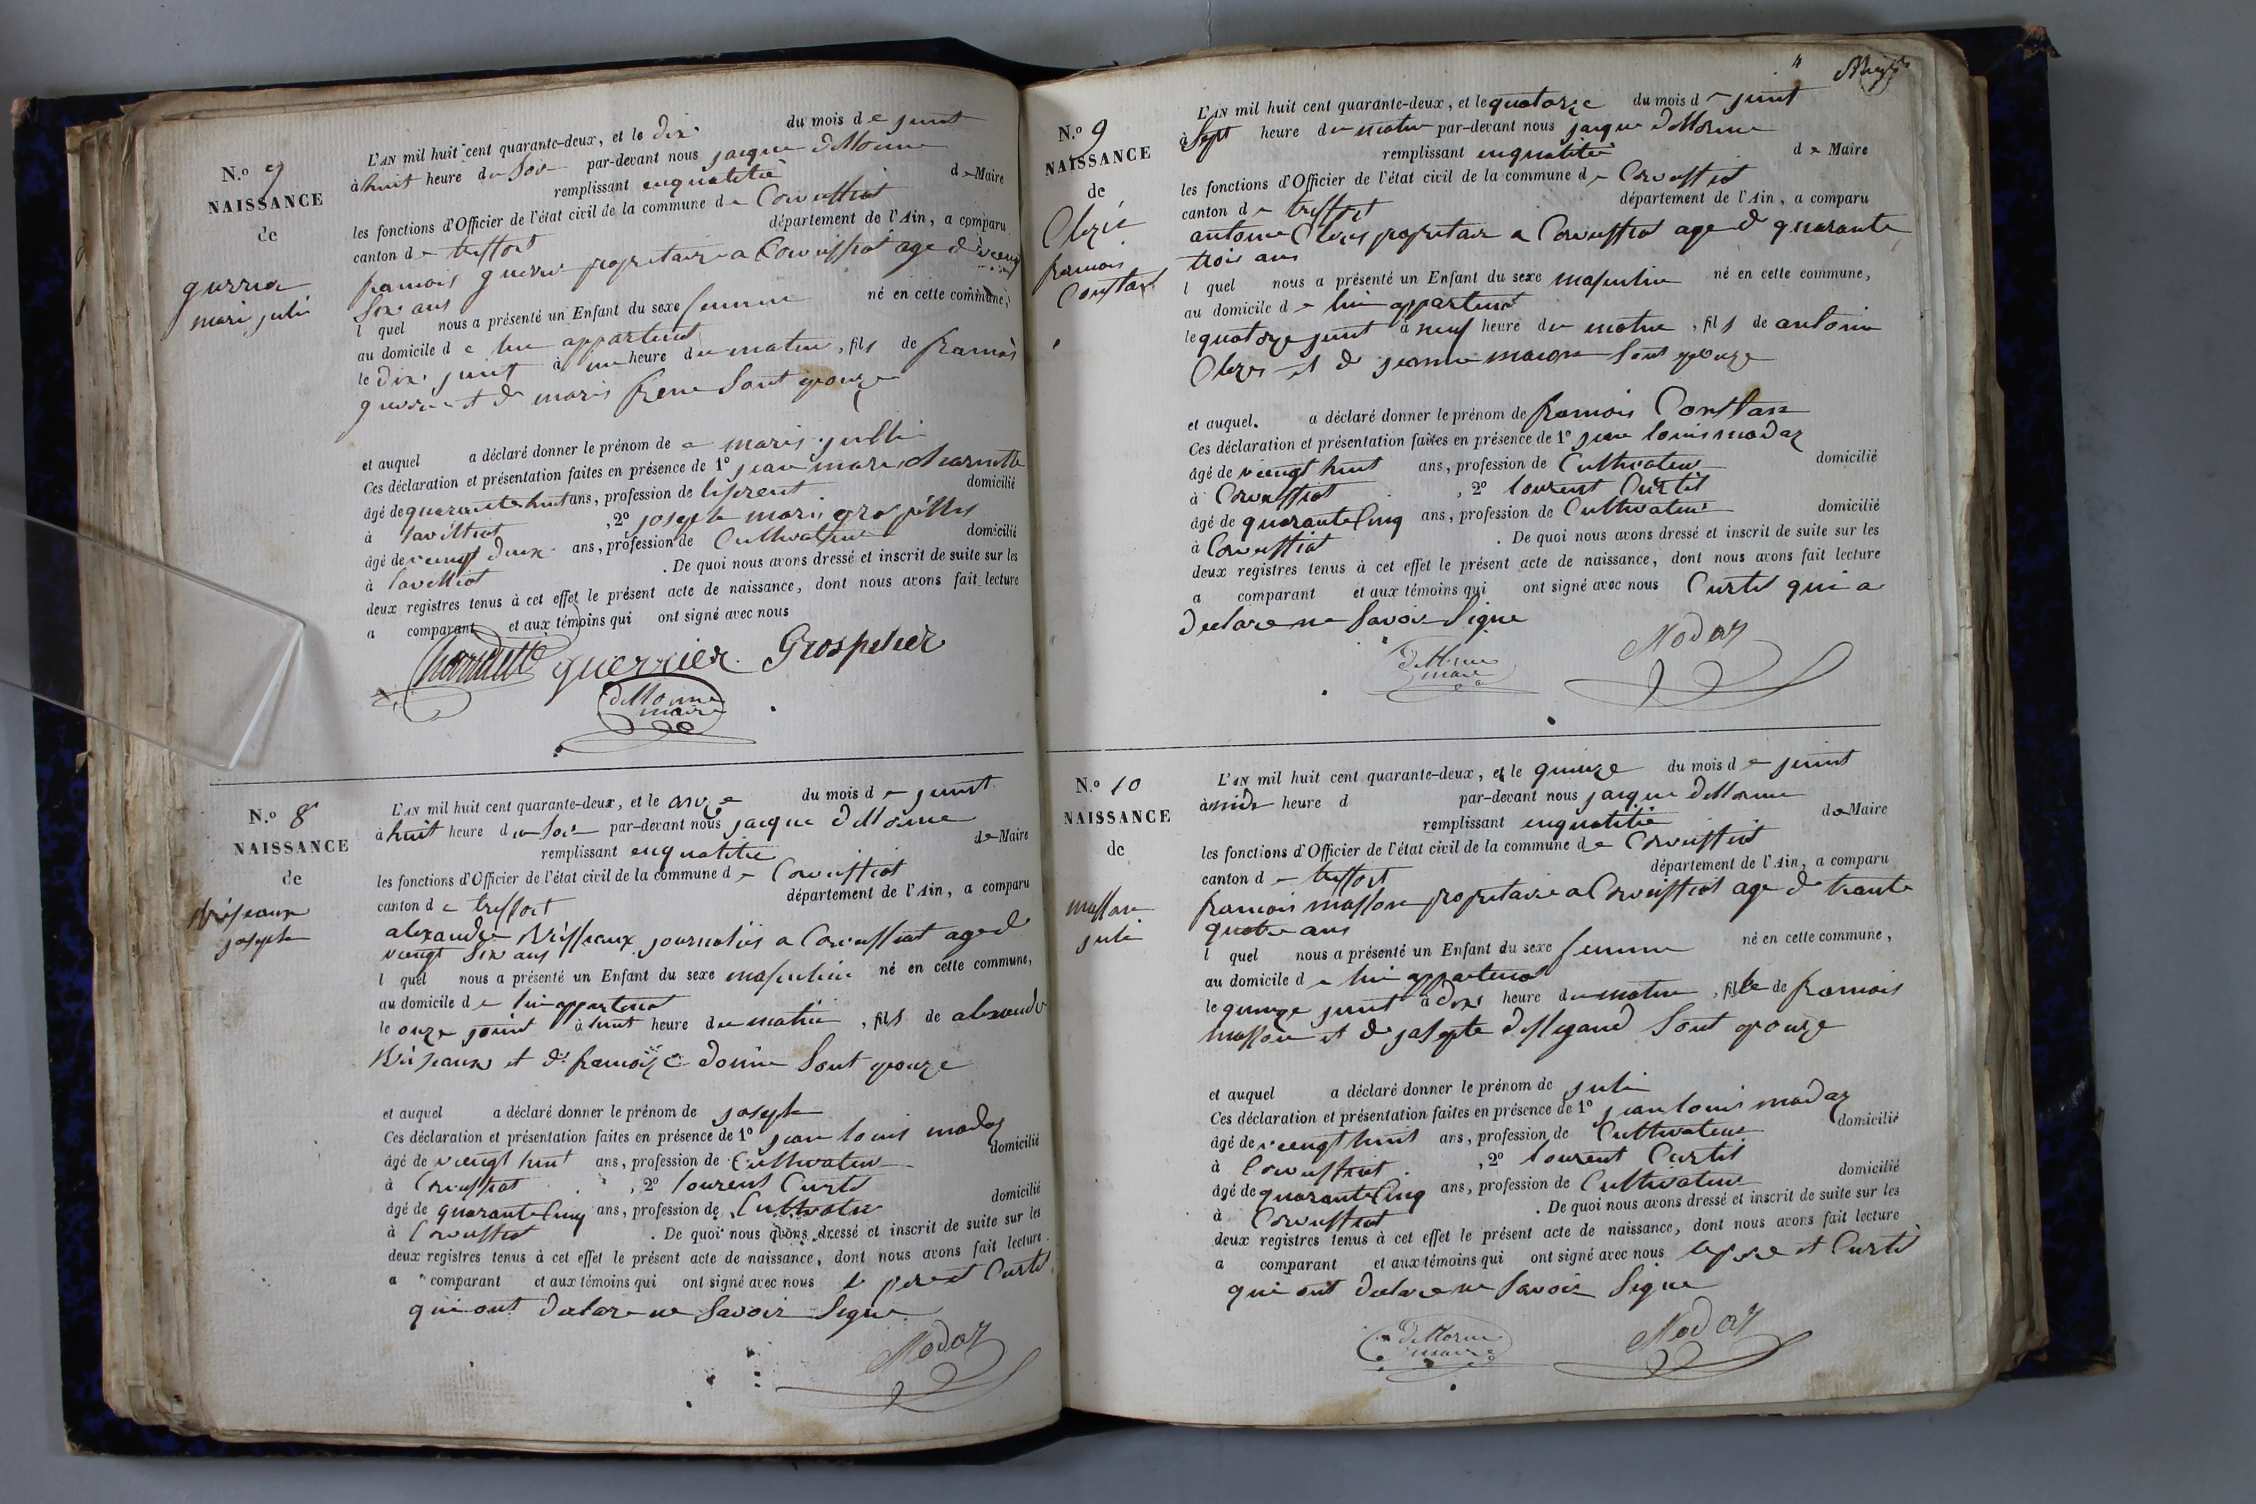 N.o 7
NAISSANCE
de
guerrier
mari juli
L'AN mil huit cent quarante-deux, et le dix du mois de juint
à huit heure du Soir par-devant nous jacque delLorme
remplissant enquatitié de Maire
les fonctions d'Officier de l'état civil de la commune de Corveissiat
canton de treffort département de l'Ain, a comparu
framois guerrier propritaire a Corveissiat age de veingt
Six ans
l quel nous a présenté un Enfant du sexe femme né en cette commune,
au domicile de lui appartena
le dix juint à une heure du matin, fils de framois
guerrier et de mari frene Sont epouze
et auquel a déclaré donner le prénom de mari julli
Ces déclaration et présentation faites en présence de 1° jean mari charnette
âgé de quarante huit ans, profession de domicilié
à , 2° joseph mari grospillier
âgé de veingt deux ans, profession de Cultivateur domicilié
à . De quoi nous avons dressé et inscrit de suite sur les
deux registres tenus à cet effet le présent acte de naissance, dont nous avons fait lecture
a comparant et aux témoins qui ont signé avec nous
guerrier Grospelier
delLorme
maire
N.o 8
NAISSANCE
de
joseph
L'AN mil huit cent quarante-deux, et le onze du mois de juint
à huit heure du Soir par-devant nous jacque delLorme
remplissant enquatitié de Maire
les fonctions d'Officier de l'état civil de la commune de Corveissiat
canton de treffort département de l'Ain, a comparu
alexandre journalier a Corveissiat age de
veingt Six ans
l quel nous a présenté un Enfant du sexe masculin né en cette commune,
au domicile de lui appartena
le onze juint à huit heure du matin, fils de alexandre
et de framoise donin Sont epouze
et auquel a déclaré donner le prénom de joseph
Ces déclaration et présentation faites en présence de 1° jean louis modaz
âgé de veingt huit ans, profession de Cultivateur domicilié
à Corveissiat, 2° lourent Curtil
âgé de quarante Cinq ans, profession de Cultivateur domicilié
à Corveissiat . De quoi nous avons dressé et inscrit de suite sur les
deux registres tenus à cet effet le présent acte de naissance, dont nous avons fait lecture
a comparant et aux témoins qui ont signé avec nous le pere et Curtil
qui ont declare ne Savoir Signe
Modaz
4
N.o 9
NAISSANCE
de
Clezie
framois
Constan
L'AN mil huit cent quarante-deux, et le quatorze du mois de juint
à Sept heure du matin par-devant nous jacque delLorme
remplissant enquatitié de Maire
les fonctions d'Officier de l'état civil de la commune de Corveissiat
canton de treffort département de l'Ain, a comparu
antoine propritaire a Corveissiat age de quarante
trois ans
l quel nous a présenté un Enfant du sexe masculin né en cette commune,
au domicile de lui appartena
le quatorze juint à neuf heure du matin, fils de antoine
et de jeanne Sont epouze
et auquel a déclaré donner le prénom de framois Constan
Ces déclaration et présentation faites en présence de 1° jean louis modaz
âgé de veingt huit ans, profession de Cultivateur domicilié
à Corveissiat, 2° lourent Curtil
âgé de quarante Cinq ans, profession de Cultivateur domicilié
à Corveissiat . De quoi nous avons dressé et inscrit de suite sur les
deux registres tenus à cet effet le présent acte de naissance, dont nous avons fait lecture
a comparant et aux témoins qui ont signé avec nous Curtil qui a
declare ne Savoir Signe
delLorme
maire
Modaz
N.o 10
NAISSANCE
de
masson
juli
L'AN mil huit cent quarante-deux, et le quinze du mois de juint
à midi heure d par-devant nous jacque delLorme
remplissant enquatitié de Maire
les fonctions d'Officier de l'état civil de la commune de Corveissiat
canton de treffort département de l'Ain, a comparu
framois masson propritaire a Corveissiat age de trante
quatre ans
l quel nous a présenté un Enfant du sexe femme né en cette commune,
au domicile de lui appartena
le quinze juint à dix heure du matin, fille de framois
masson et de josepte Sont epouze
et auquel a déclaré donner le prénom de juli
Ces déclaration et présentation faites en présence de 1° jean louis modaz
âgé de veingt huit ans, profession de Cultivateur domicilié
à Corveissiat, 2° lourent Curtil
âgé de quarante Cinq ans, profession de Cultivateur domicilié
à Corveissiat . De quoi nous avons dressé et inscrit de suite sur les
deux registres tenus à cet effet le présent acte de naissance, dont nous avons fait lecture
a comparant et aux témoins qui ont signé avec nous le pere et Curtil
qui ont declare ne Savoir Signe
delLorme
maire
Modaz